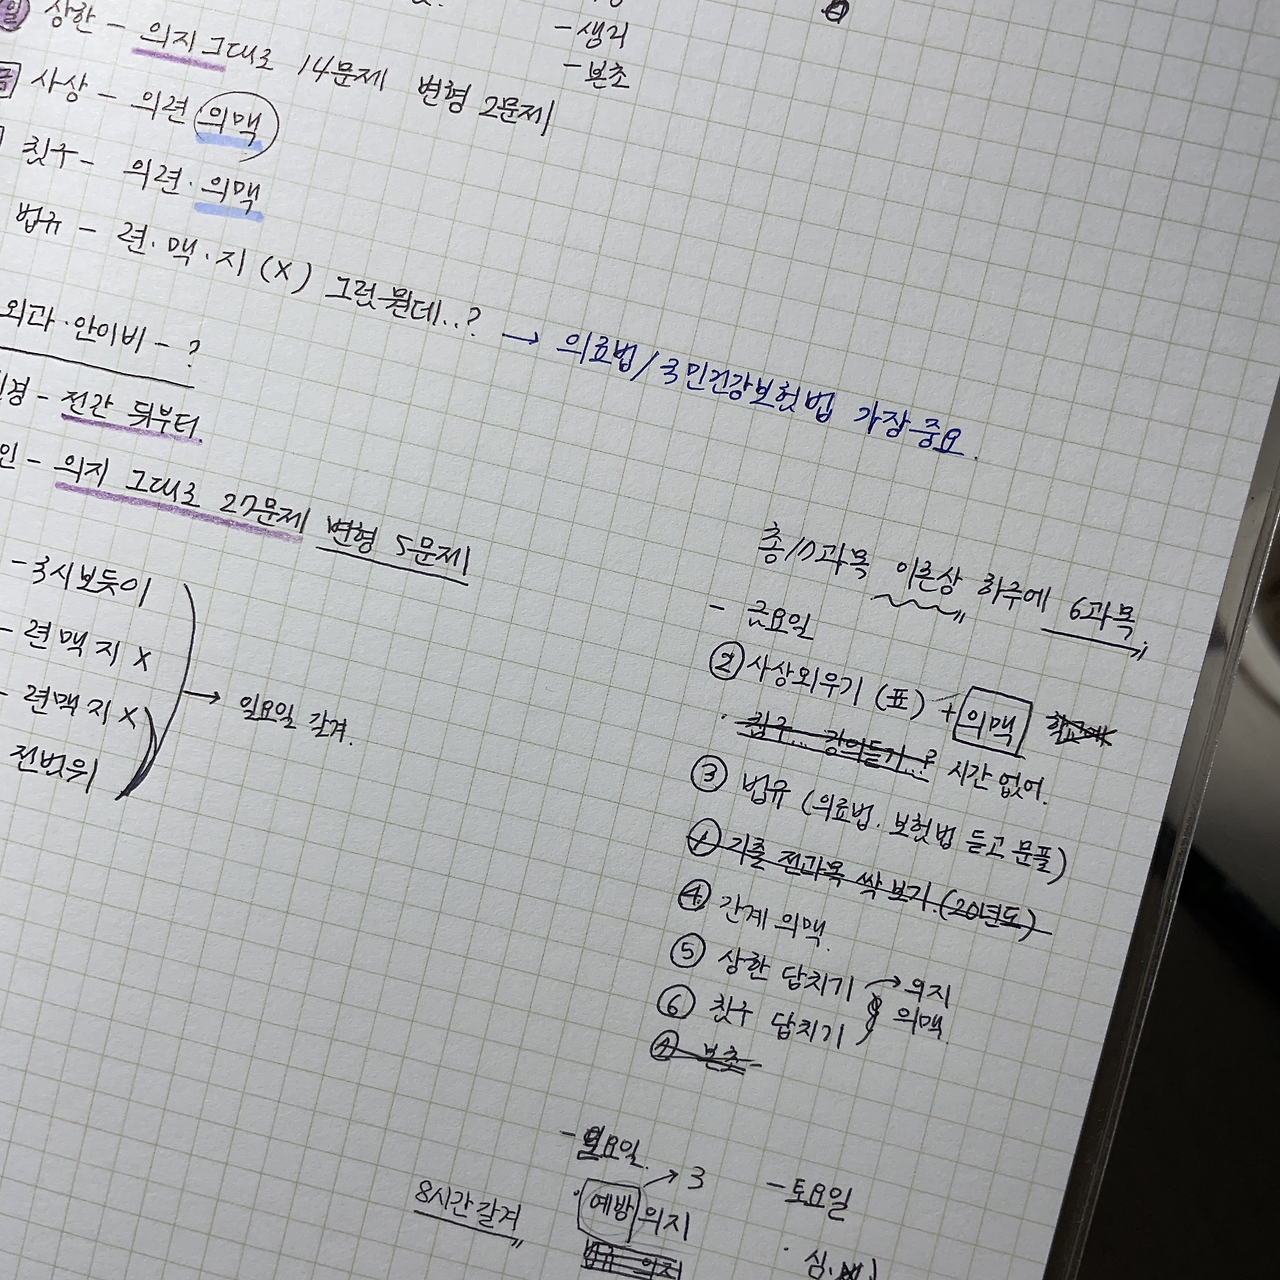 - 생리
- 본초
일 상한 - 의지 그대로 14문제 변형 2문제
금 사상 - 의련 의맥
침구 - 의련 · 의맥
법규 - 련 · 맥 · 지 (X) 그럼 뭔데..? → 의료법/국민건강보험법 가장 중요.
외과 · 안이비 - ?
경 - 전간 뒤부터
인 - 의지 그대로 27문제 변형 5문제
- 국시보듯이
- 련 맥 지 X
- 련 맥 지 X
전범위
→ 일요일 갈겨.
총 10과목 이론상 하루에 6과목.
- 금요일
② 사상외우기 (표) + 의맥
· 침구... 강의듣기..? 시간 없어.
③ 법규 (의료법. 보험법 듣고 문풀)
① 기출 전과목 싹 보기. (20년도)
④ 간계 의맥.
⑤ 상한 답치기 → 의지
⑥ 침구 답치기 의맥
본초
- 일요일. → 3
8시간 갈겨
· 예방 의지
법규 의지
- 토요일
· 심.